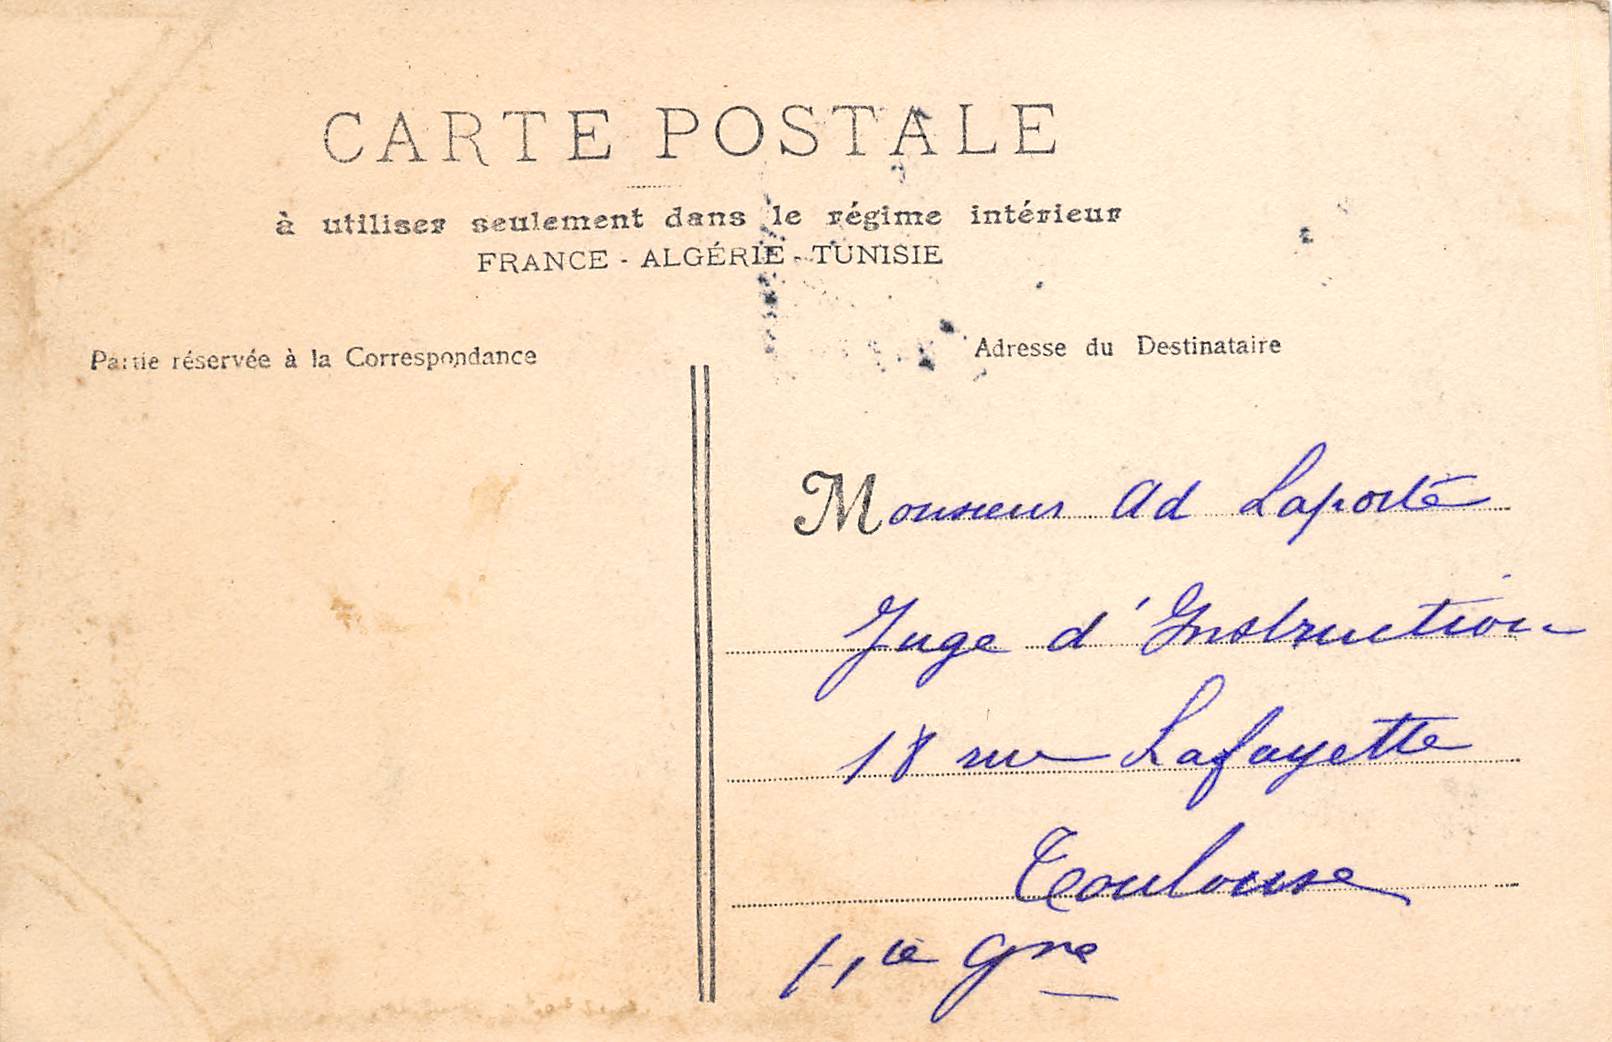 CARTE POSTALE
à utiliser seulement dans le régime intérieur
FRANCE - ALGÉRIE - TUNISIE
Partie réservée à la Correspondance
Adresse du Destinataire
Monsieur Ad Laporte
Juge d'Instruction
18 rue Lafayette
Toulouse
Hte Gne